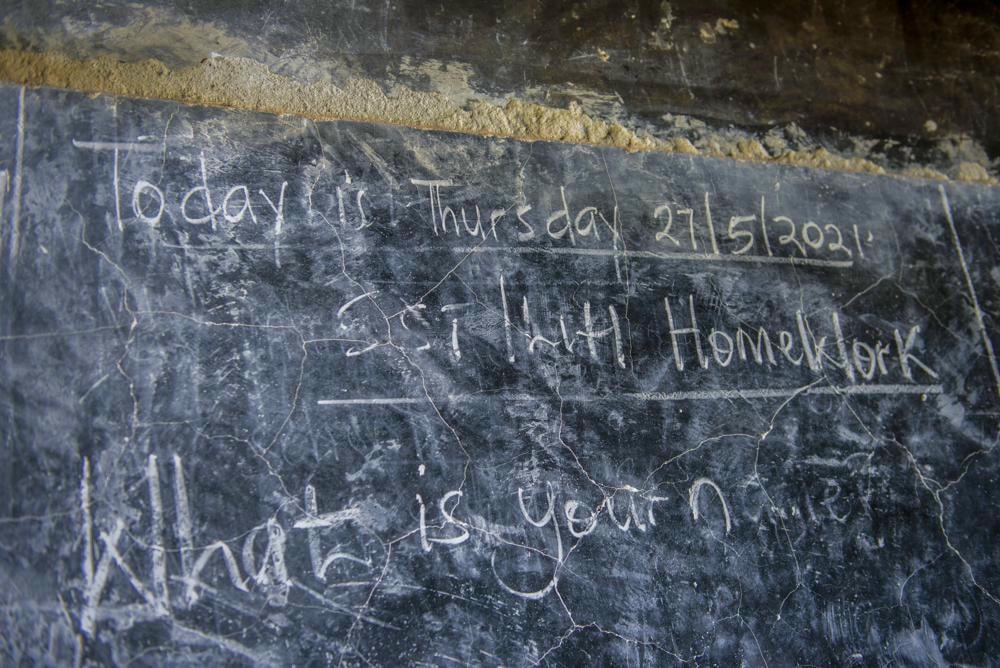 Today is Thursday 27/5/2021.
Homework
What is your n